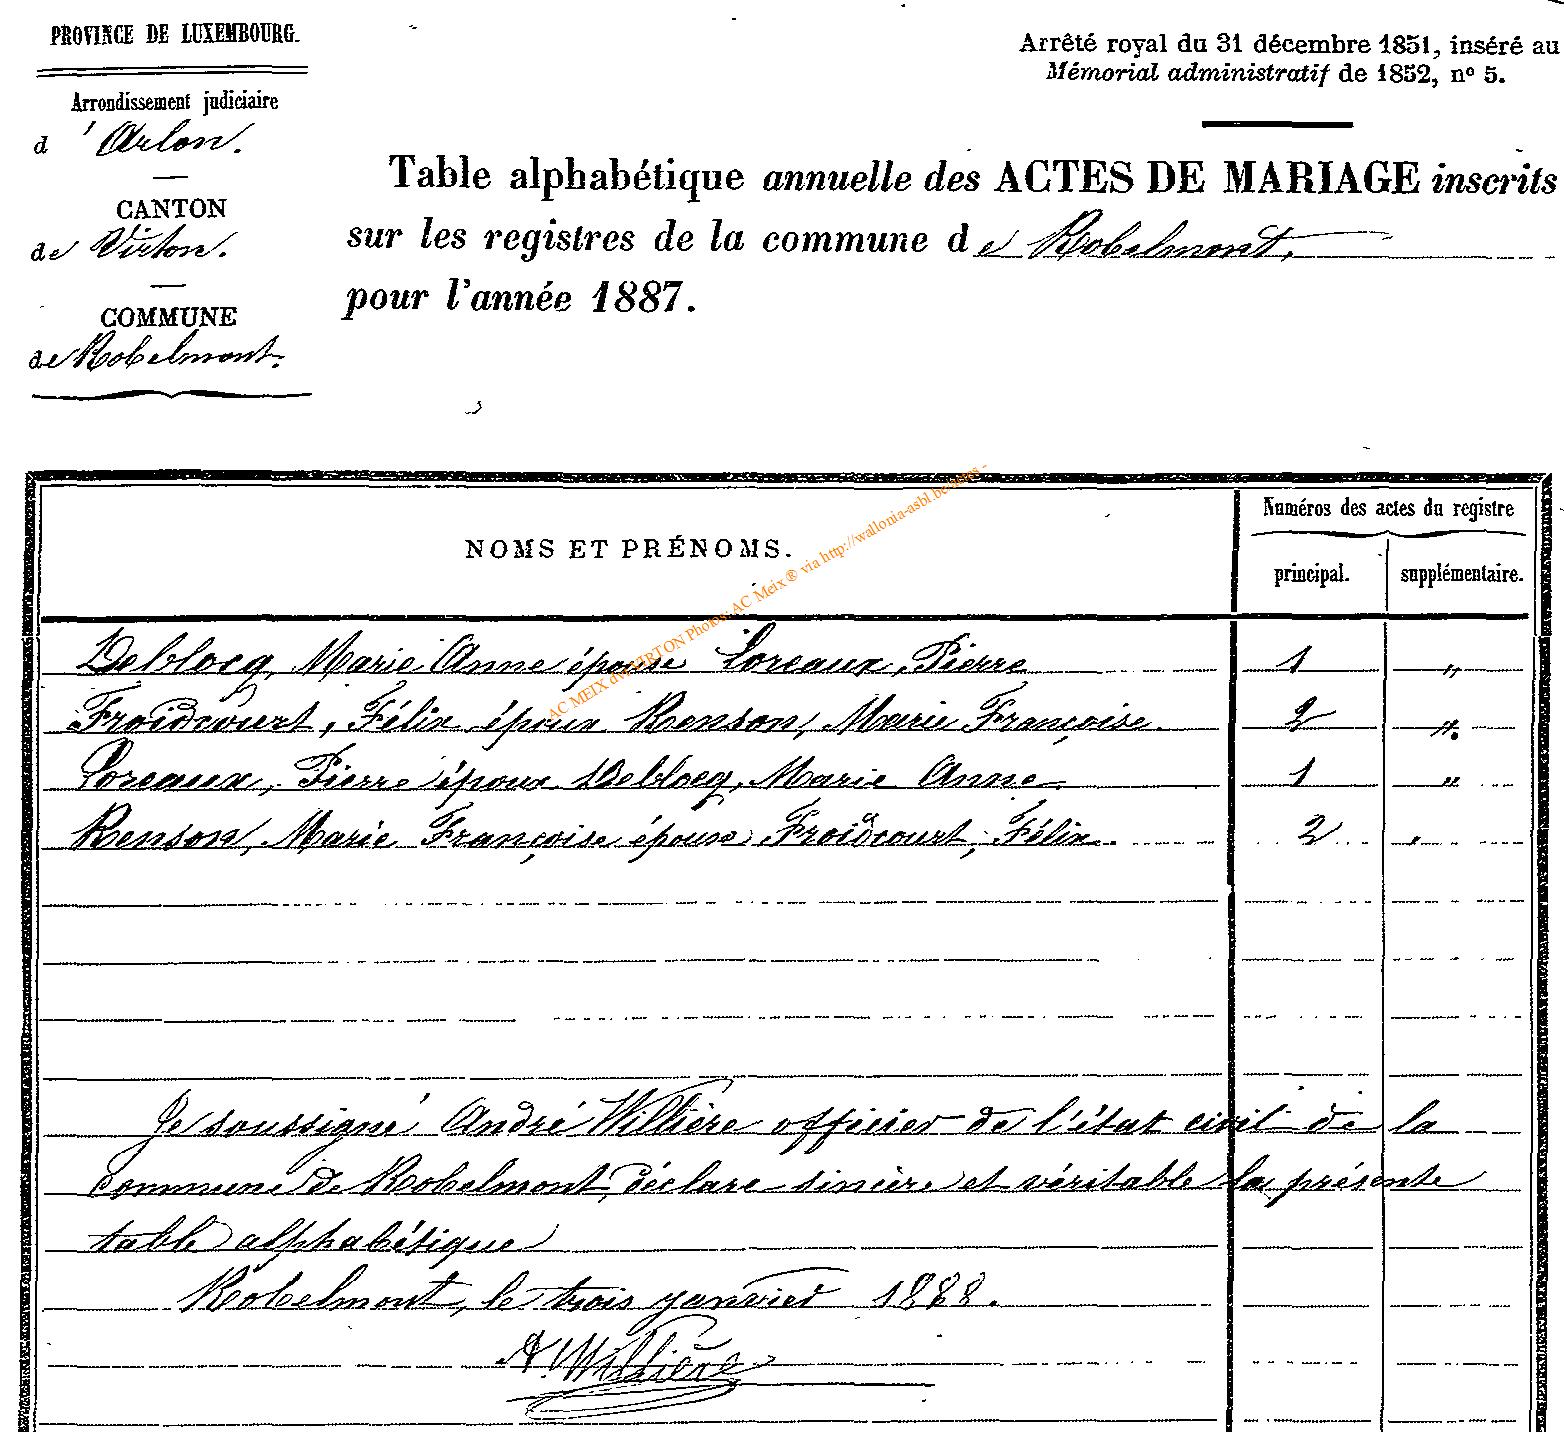 PROVINCE DE LUXEMBOURG.
Arrondissement judiciaire
d'Arlon.
CANTON
de Virton.
COMMUNE
de Robelmont.
Arrêté royal du 31 décembre 1851, inséré au
Mémorial administratif de 1852, nº 5.
Table alphabétique annuelle des ACTES DE MARIAGE inscrits
sur les registres de la commune de Robelmont,
pour l'année 1887.
NOMS ET PRÉNOMS.
Numéros des actes du registre
principal. supplémentaire.
AC MEIX dvt VIRTON Photos: AC Meix® via http://wallonia-asbl.be
Deblocq, Marie Anne épouse Loreaux, Pierre 1 "
Froidcourt, Félix époux Renson, Marie Françoise. 2 "
Loreaux, Pierre époux Deblocq, Marie Anne 1 "
Renson, Marie Françoise épouse Froidcourt, Félix. 2 "
Je soussigné André Willière officier de l'état civil de la
commune de Robelmont, déclare sincère et véritable la présente
table alphabétique
Robelmont, le trois janvier 1888.
A. Willière